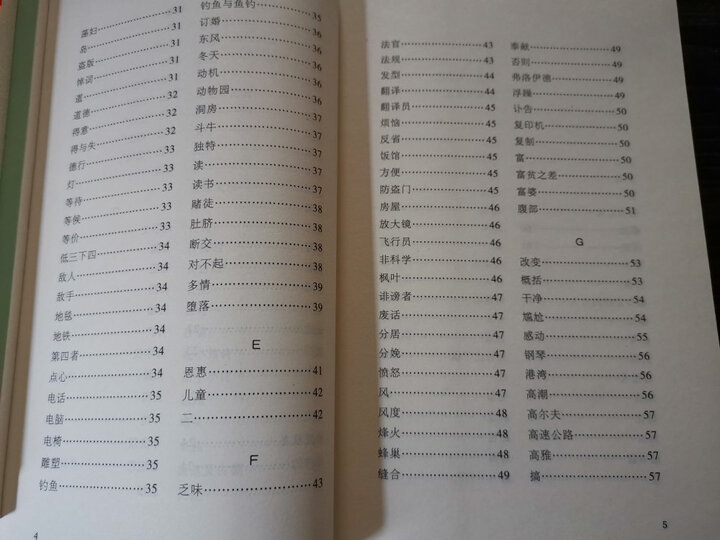 荡妇……31
岛……31
盗版……31
悼词……31
道……31
道德……32
得意……32
得与失……32
德行……33
灯……33
等待……33
等候……33
等价……33
低三下四……34
敌人……34
敌手……34
地毯……34
地铁……34
第四者……34
点心……34
电话……35
电脑……35
电椅……35
雕塑……35
钓鱼……35
4
钓鱼与鱼钓……35
订婚……36
东风……36
冬天……36
动机……36
动物园……36
洞房……36
斗牛……37
独特……37
读……37
读书……37
赌徒……38
肚脐……38
断交……38
对不起……38
多情……39
堕落……39
E
恩惠……41
儿童……42
二……42
F
乏味……43
法官……43
法规……43
发型……44
翻译……44
翻译员……45
烦恼……45
反省……45
饭馆……45
方便……45
防盗门……45
房屋……46
放大镜……46
飞行员……46
非科学……46
枫叶……46
诽谤者……47
废话……47
分居……47
分娩……47
愤怒……47
风……47
风度……48
烽火……48
蜂巢……48
缝合……49
奉献……49
否则……49
弗洛伊德……49
浮躁……49
讣告……50
复印机……50
复制……50
富……50
富贫之差……50
富婆……50
腹部……51
G
改变……53
概括……53
干净……54
尴尬……54
感动……55
钢琴……56
港湾……56
高潮……56
高尔夫……57
高速公路……57
高雅……57
搞……57
5